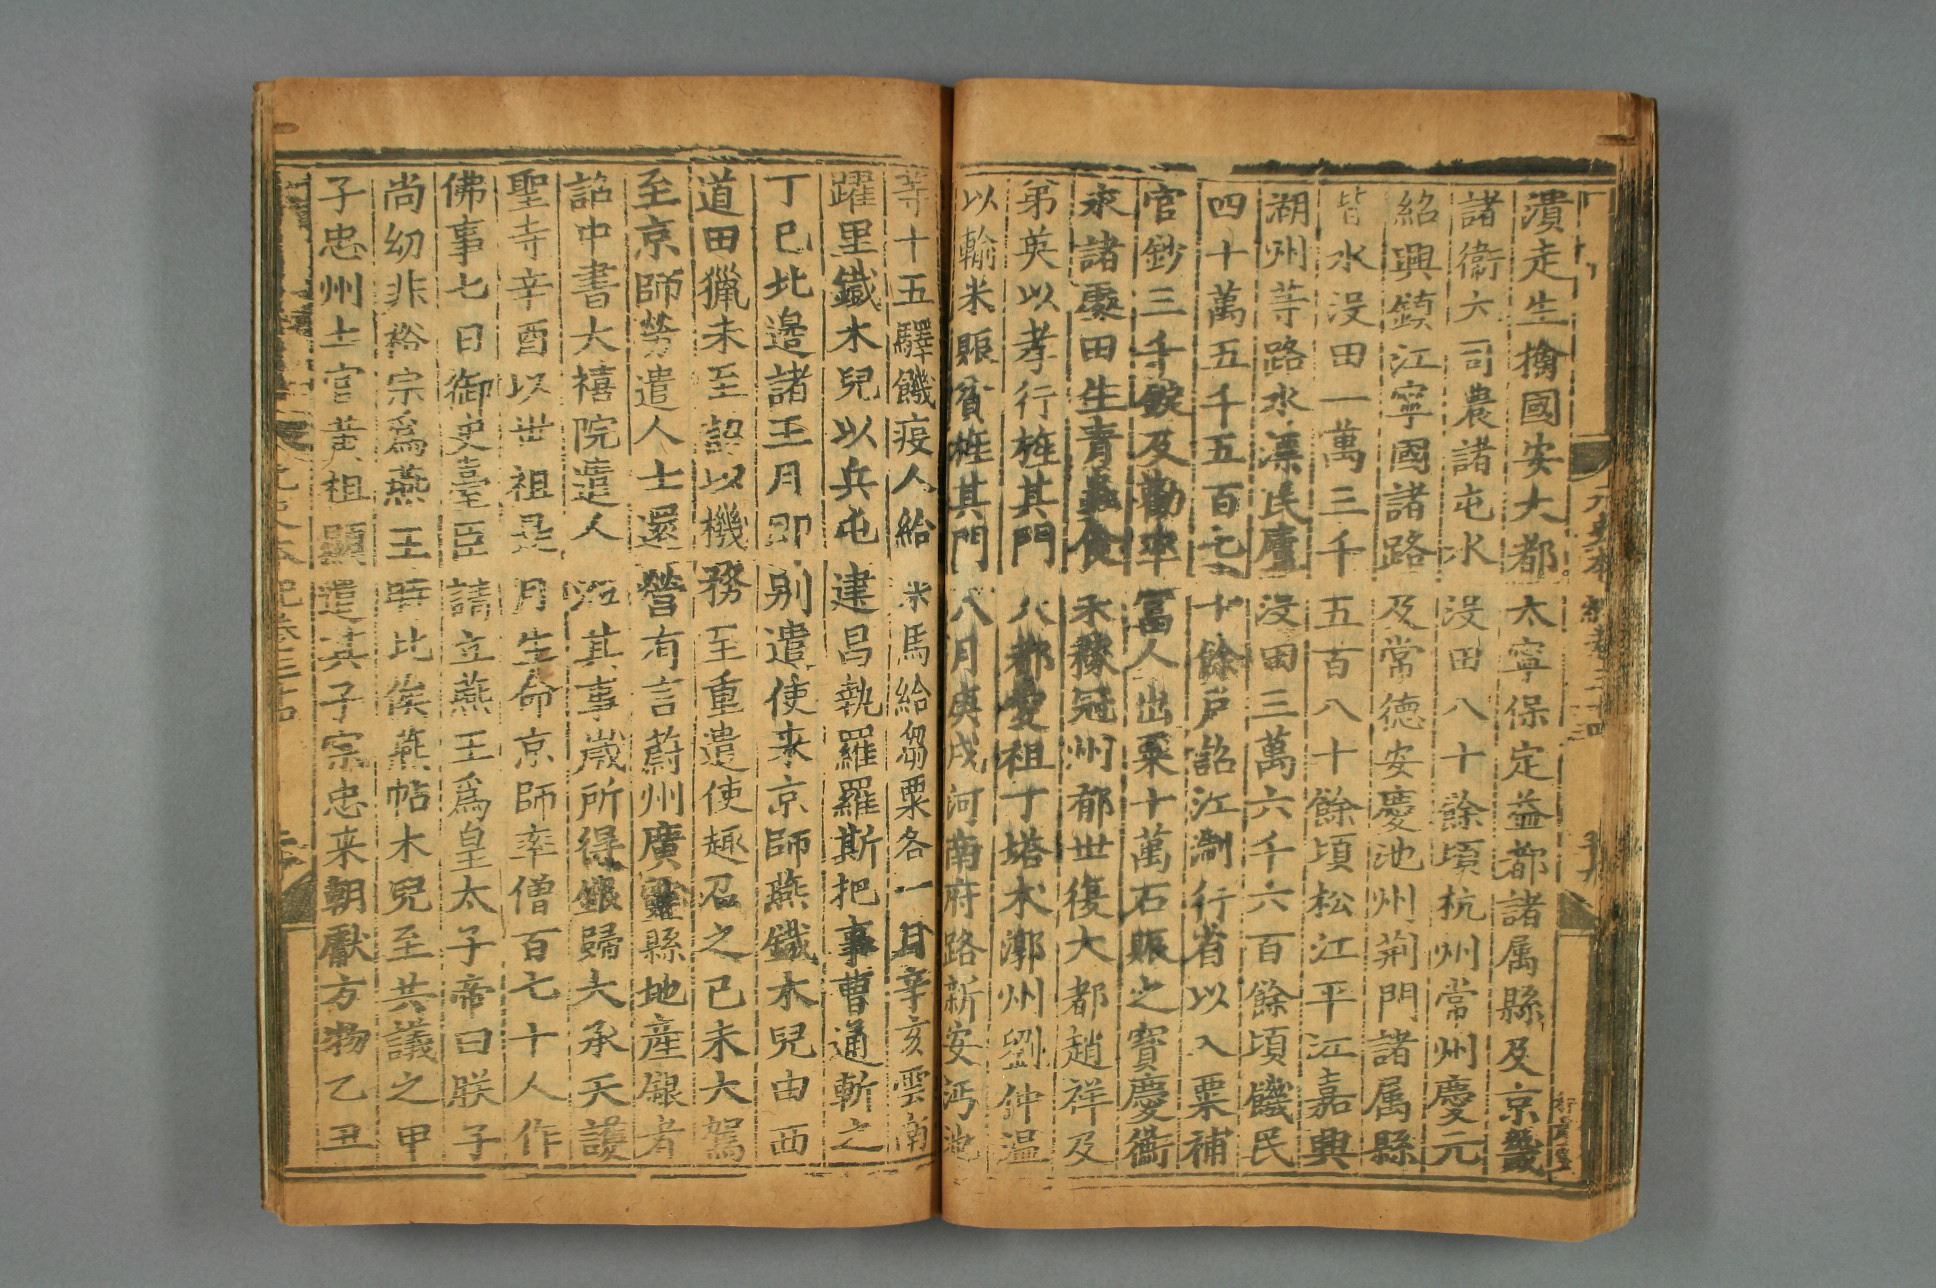 潰走生擒國安大都太寧保定益都諸属縣及京畿
諸衞六司農諸屯水沒田八十餘頃杭州常州慶元
紹興鎮江寧國諸路及常德安慶池州荊門諸属縣
皆水沒田一萬三千五百八十餘頃松江平江嘉興
湖州等路水漂民廬沒田三萬六千六百餘頃饑民
四十萬五千五百七十餘戶詔江淛行省以入粟補
官鈔三千錠及勸率富人出粟十萬石賑之寶慶衡
永諸處田生青蟲食禾稼冠州郁世復大都趙祥及
弟英以孝行旌其門八都愛祖丁塔朮漷州劉仲温
以輸米賑貧旌其門八月庚戌河南府路新安沔池
等十五驛饑疫人給米馬給芻粟各一月辛亥雲南
躍里鐵木兒以兵屯建昌執羅羅斯把事曹通斬之
丁巳北邉諸王月即别遣使来京師燕鐵木兒由西
道田獵未至詔以機務至重遣使趣召之已未大駕
至京師勞遣人士還營有言蔚州廣靈縣地産銀者
詔中書大禧院遣人涖其事歲所得銀歸大承天護
聖寺辛酉以世祖是月生命京師率僧百七十人作
佛事七日御史臺臣請立燕王爲皇太子帝曰朕子
尚幼非裕宗爲燕王時比俟燕帖木兒至共議之甲
子忠州土官黄祖顯遣其子宗忠来朝獻方物乙丑